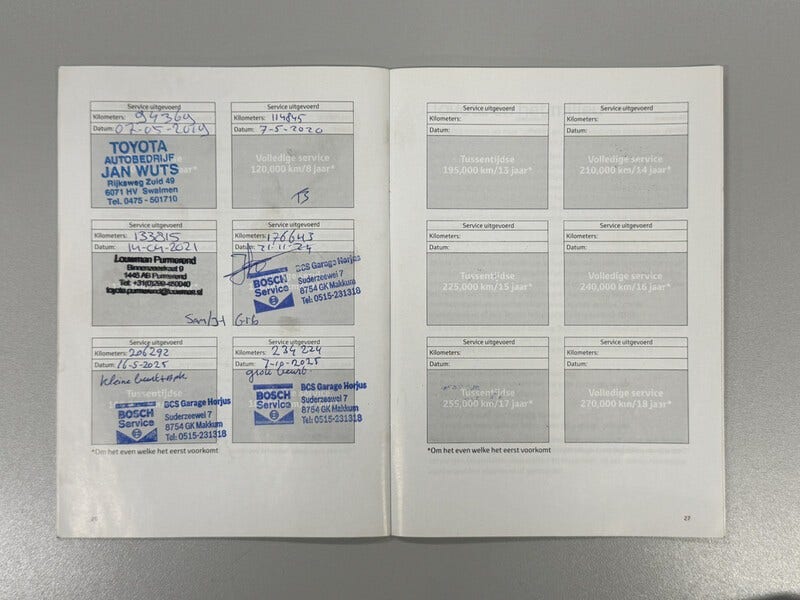 Service uitgevoerd
Kilometers: 94369
Datum: 07-05-2019
TOYOTA
AUTOBEDRIJF
JAN WUTS
Rijksweg Zuid 49
6071 HV Swalmen
Tel. 0475 - 501710
Service uitgevoerd
Kilometers: 114845
Datum: 7-5-2020
Volledige service
120,000 km/8 jaar*
TS
Service uitgevoerd
Kilometers: 133815
Datum: 14-04-2021
Louwman Purmerend
1446 AB Purmerend
Tel: +31(0)299-450040
Service uitgevoerd
Kilometers: 176643
Datum: 21-11-24
BOSCH
Service
BCS Garage Horjus
Suderzeewei 7
8754 GK Makkum
Tel: 0515-231318
Service uitgevoerd
Kilometers: 206292
Datum: 16-5-2025
kleine beurt + apk
Tussentijdse
BOSCH
Service
BCS Garage Horjus
Suderzeewei 7
8754 GK Makkum
Tel: 0515-231318
Service uitgevoerd
Kilometers: 234224
Datum: 7-10-2025
grote beurt
BOSCH
Service
BCS Garage Horjus
Suderzeewei 7
8754 GK Makkum
Tel: 0515-231318
*Om het even welke het eerst voorkomt
26
Service uitgevoerd
Kilometers:
Datum:
Tussentijdse
195,000 km/13 jaar*
Service uitgevoerd
Kilometers:
Datum:
Volledige service
210,000 km/14 jaar*
Service uitgevoerd
Kilometers:
Datum:
Tussentijdse
225,000 km/15 jaar*
Service uitgevoerd
Kilometers:
Datum:
Volledige service
240,000 km/16 jaar*
Service uitgevoerd
Kilometers:
Datum:
Tussentijdse
255,000 km/17 jaar*
Service uitgevoerd
Kilometers:
Datum:
Volledige service
270,000 km/18 jaar*
*Om het even welke het eerst voorkomt
27